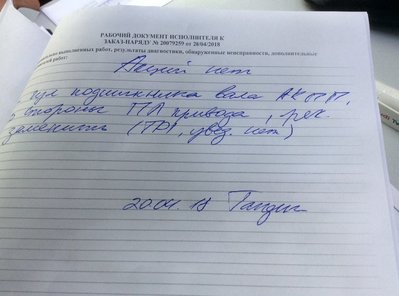 РАБОЧИЙ ДОКУМЕНТ ИСПОЛНИТЕЛЯ К
ЗАКАЗ-НАРЯДУ № 20079259 от 20/04/2018
выполненных работ, результаты диагностики, обнаруженные неисправности, дополнительные
работ:
Акций нет
Гул подшипника вала АКПП,
стороны ПЛ привода, рек.
заменить (ТР1, увед. нет)
20.04.18